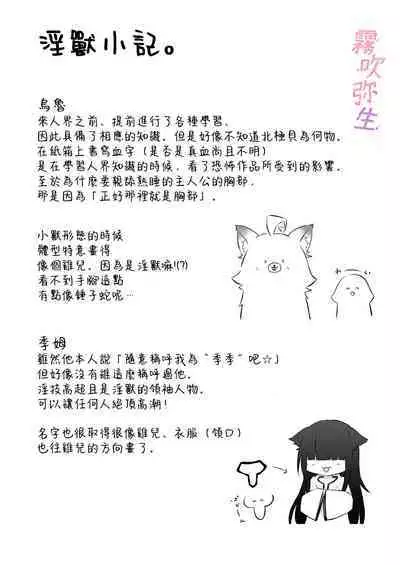 淫獸小記。
霧吹弥生
烏魯
來人界之前、提前進行了各種學習、
因此具備了相應的知識，但是好像不知道北種貝為何物，
在紙箱上書寫血字（是否是真血尚且不明）
是在學習人界知識的時候，看了恐怖作品所受到的影響。
至於為什麼要親舔熟睡的主人公的胸部，
那是因為「正好那裡就是胸部」，
小獸形態的時候
體型特意畫得
像個雞兒，因為是淫獸嘛!(?)
看不到手腳這點
有點像錘子蛇呢…
季姆
雖然他本人說「隨意稱呼我為“季季”吧☆」
但好像沒有誰這麼稱呼過他。
淫技高超且是淫獸的領袖人物。
可以讓任何人絕頂高潮!
名字也很取得很像雞兒、衣服（領口）
也往雞兒的方向畫了。